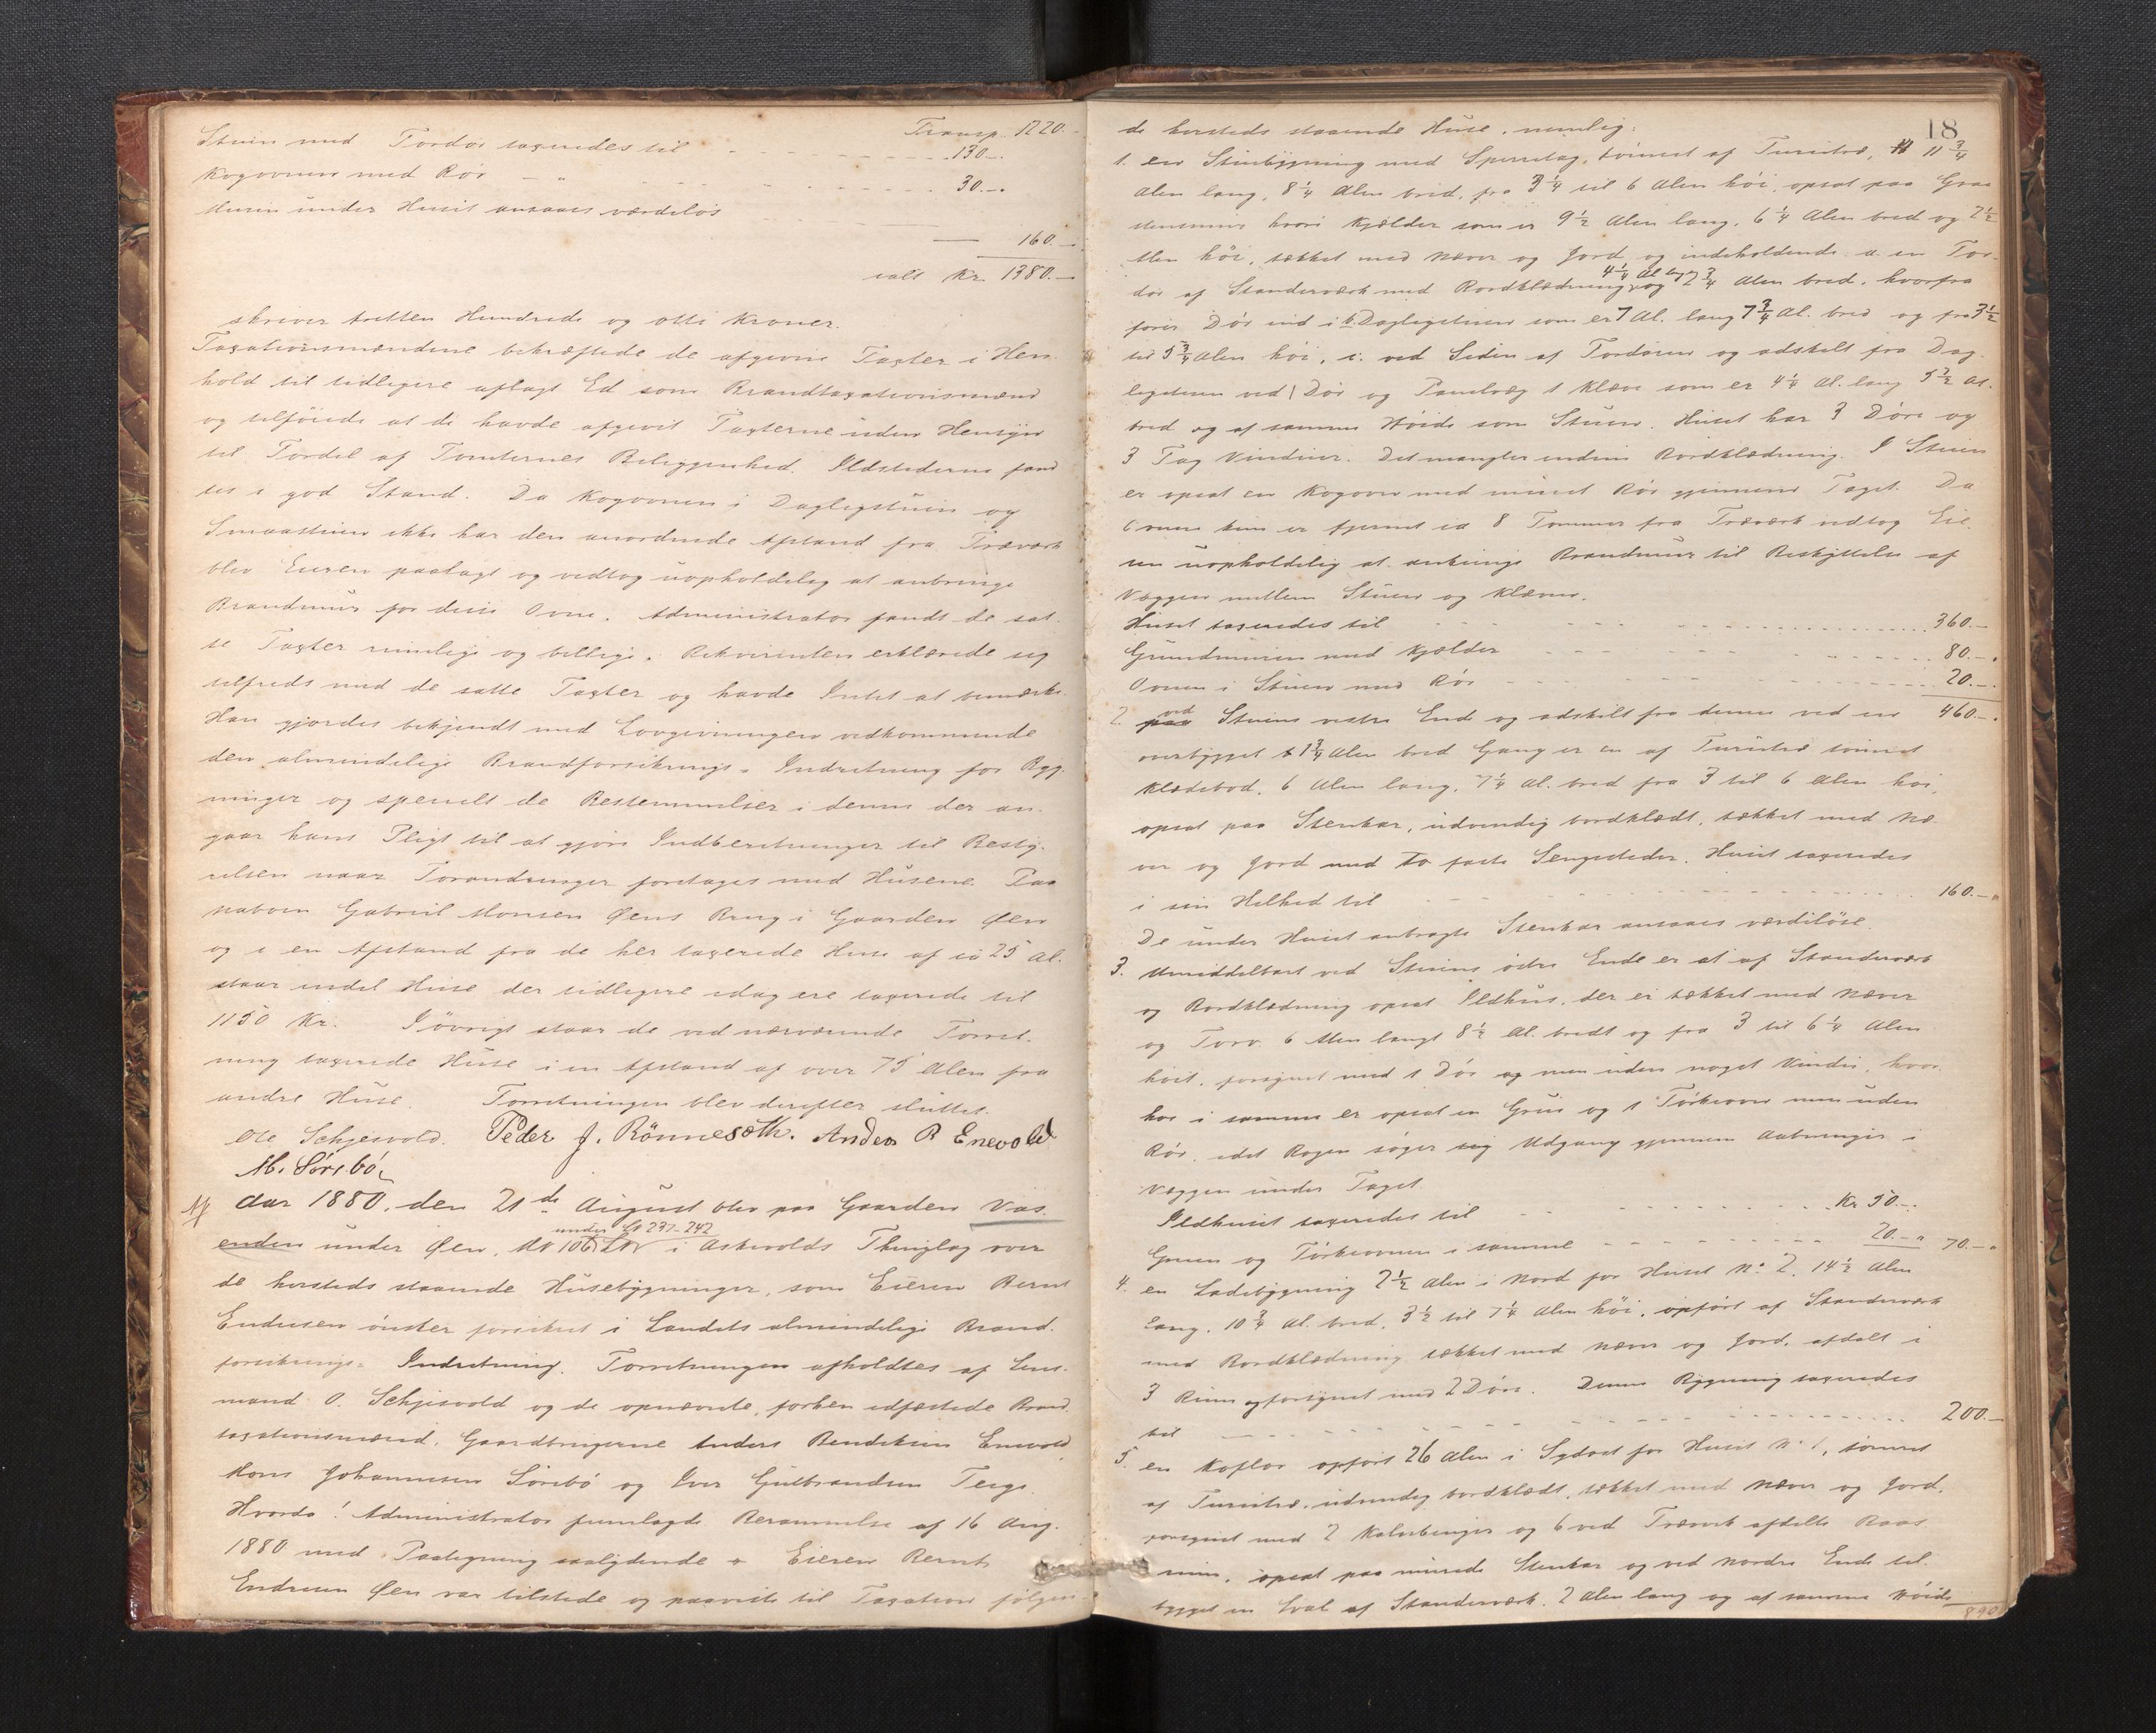 Transp. 1220.-
Stuen med Fordør taxeredes til - - - 130.-
Kogovnen med Rør - " - - - 30.-
Muren under Huset ansaaes værdeløs
160.-
ialt Kr. 1380.-
skriver tretten Hundrede og otti Kroner.
Taxationsmændene bekræftede de afgivne Taxter i Hen-
hold til tidligere aflagt Ed som Brandtaxationsmænd
og tilføiede at de havde afgivet Taxterne uden Hensyn
til Fordel af Tomternes Beliggenhed. Ildstederne fand-
tes i god Stand. Da Kogovnen i Dagligstuen og
Smaastuen ikke har den anordnede Afstand fra Træværk
blev Eieren paalagt og vedtog uopholdelig at anbringe
Brandmur for disse Ovne. Administrator fandt de sat-
te Taxter rimelige og billige. Rekvirenten erklærede sig
tilfreds med de satte Taxter og havde Intet at bemærke.
Han gjordes bekjendt med Lovgivningen vedkommende
den almindelige Brandforsikrings-Indretning for Byg-
ninger og specielt de Bestemmelser i denne der an-
gaar hans Pligt til at gjøre Indberetninger til Besty-
relsen naar Forandringer foretages med Husene. Paa
naboen Gabriel Monsen Øens Brug i Gaarden Øen
og i en Afstand fra de her taxerede Huse af ca 25 Al.
staar endel Huse der tidligere idag ere taxerede til
1150 Kr. I øvrigt staar de ved nærværende Forret-
ning taxerede Huse i en Afstand af over 75 Alen fra
andre Huse. Forretningen blev derefter sluttet.
Ole Schjesvold. Peder J. Rönnesæth. Anders B Enevold
M. Sörebö
Aar 1880, den 21de August blev paa Gaarden Vas-
under Lb 237-242
enden under Øen, M No 106 i Askevolds Thinglag over
de hersteds staaende Husebygninger, som Eieren Bernt
Endresen ønsker forsikret i Landets almindelige Brand-
forsikrings-Indretning. Forretningen afholdtes af Lens-
mand O. Schjesvold og de opnævnte, forhen edfæstede Brand-
taxationsmænd, Gaardbrugerne Anders Bendiksen Enevold
Mons Johannesen Sörebö og Iver Gulbrandsen Teige.
Hvorda! Administrator fremlagde Berammelse af 16 Aug.
1880 med Paategning saalydende Eieren Bernt
Endresen Øen var tilstede og paaviste til Taxation følgen-
18
de hersteds staaende Huse, nemlig:
1. en Stuebygning med Sperretag, tømret af Furutræ, 11 3/4
Alen lang, 8 1/4 Alen bred, fra 3 1/4 til 6 Alen høi, opsat paa Graa-
stensmur hvori Kjælder som er 9 1/2 Alen lang, 6 1/4 Alen bred og 2 1/2
Alen høi, tækket med Næver og Jord og indeholdende a. en For-
4 1/4 Al. lang
dør af Standerværk med Bordklædning og 2 3/4 Alen bred, hvorfra
fører Dør ind i b. Dagligstuen som er 7 Al. lang 7 3/4 Al. bred og fra 3 1/2
til 5 3/4 Alen høi, c. ved Siden af Fordøren og adskilt fra Dag-
ligstuen ved 1 Dør og Panelvæg 1 Kleve som er 4 1/4 Al. lang 3 1/2 Al.
bred og af samme Høide som Stuen. Huset har 3 Døre og
3 Fag Vinduer. Det mangler endnu Bordklædning. I Stuen
er opsat en Kogovn med muret Rør gjennem Taget. Da
Ovnen kun er fjernet ca 8 Tommer fra Træværk vedtog Eie-
ren uopholdelig at anbringe Brandmur til Beskyttelse af
Væggen mellem Stuen og Kleven.
Huset taxeredes til - - - 360.-
Grundmuren med Kjælder - - - 80.-
Ovnen i Stuen med Rør - - - 20.-
ved
2. paa Stuens vestre Ende og adskilt fra denne ved en 460.-
overbygget 1 3/4 Alen bred Gang er en af Furutræ tømret
Klædebod, 6 Alen lang, 7 1/4 Al. bred fra 3 til 6 Alen høi,
opsat paa Stenkar, udvendig bordklædt, tækket med Næ-
ver og Jord med to faste Sengesteder. Huset taxeredes
i sin Helhed til - - - 160.-
De under Huset anbragte Stenkar ansaaes værdiløse.
3. Umiddelbart ved Stuens østre Ende er et af Standerværk
og Bordklædning opsat Ildhus, der er tækket med Næver
og Torv 6 Alen langt 8 1/2 Al. bredt og fra 3 til 6 1/4 Alen
høit, forsynet med 1 Dør og men uden noget Vindu, hvor-
hos i samme er opsat en Grue og 1 Tørkeovn men uden
Rør, idet Røgen søger sig Udgang gjennem Aabninger i
Væggen under Taget
Ildhuset taxeredes til - - - Kr 50.-
Gruen og Tørkeovnen i samme - - - 20.- 70.-
4. en Ladebygning 2 1/2 Alen i Nord for Huset No 2, 14 1/2 Alen
lang, 10 3/4 Al. bred, 3 1/2 til 7 1/4 Alen høi, opført af Standerværk
med Bordklædning tækket med Næver og Jord, afdelt i
3 Rum og forsynet med 2 Døre. Denne Bygning taxeredes
til - - - 200.-
5. en Koflor opført 26 Alen i Sydost for Huset No 1, tømret
af Furutræ, udvendig bordklædt, tækket med Næver og Jord,
forsynet med 2 Kalvebinger og 6 ved Træværk afdelte Baas-
rum, opsat paa murede Stenkar og ved nordre Ende til-
bygget en Sval af Standerværk, 2 Alen lang og af samme Høide
890